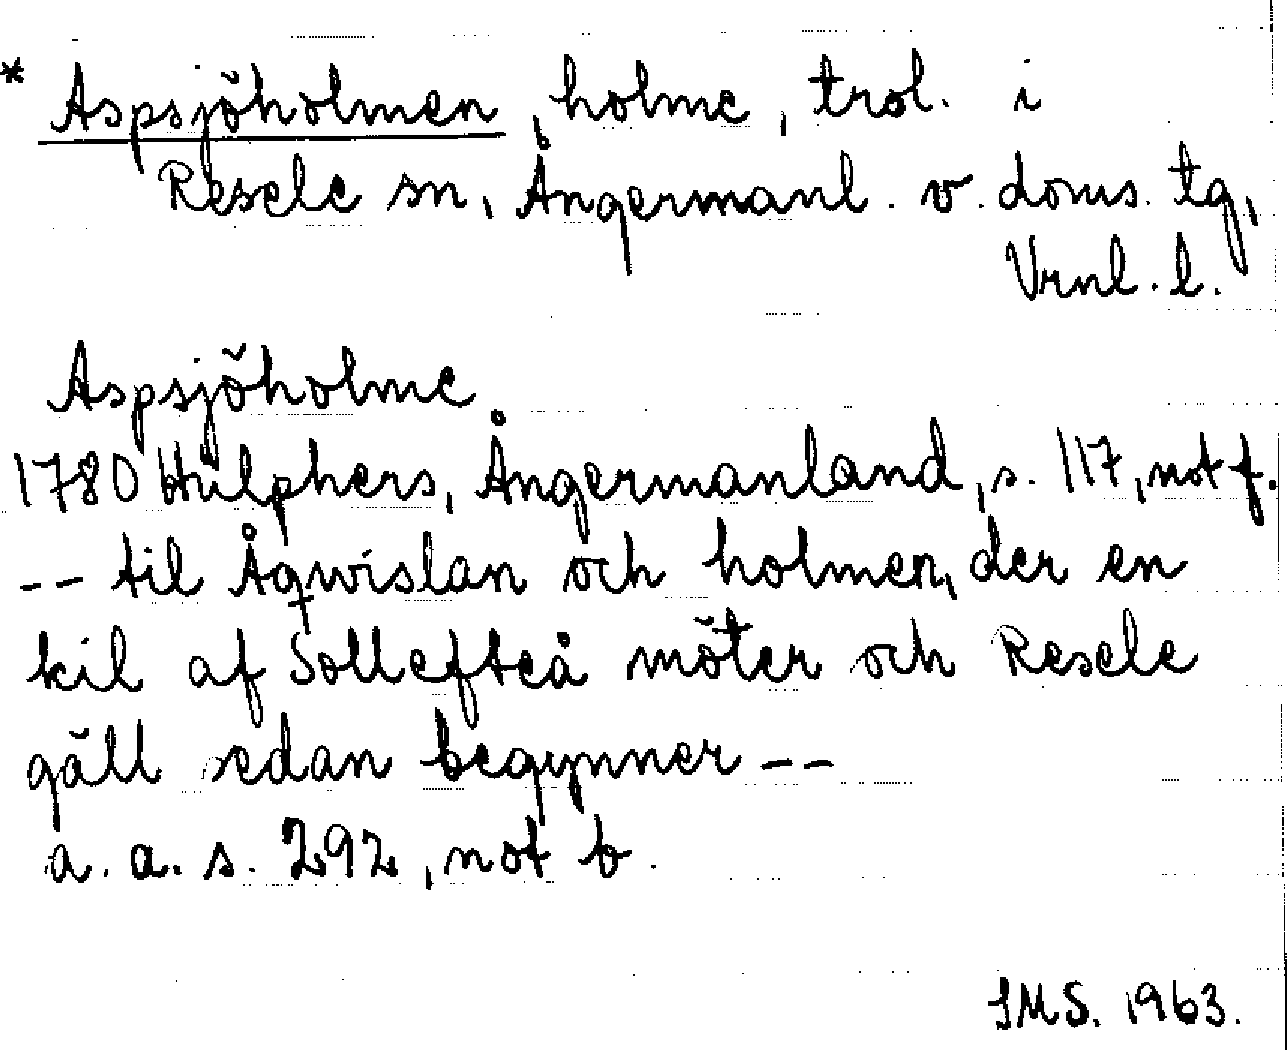 * Aspsjöholmen, holme, trol. i
Resele sn, Ångermanl. v. doms. tg,
Vrnl. l.
Aspsjöholme
1780 Hülphers, Ångermanland, s. 117, not f.
-- til Åqwislan och holmen, der en
kil af Sollefteå möter och Resele
gäll sedan begynner --
a. a. s. 292, not b.
SMS. 1963.